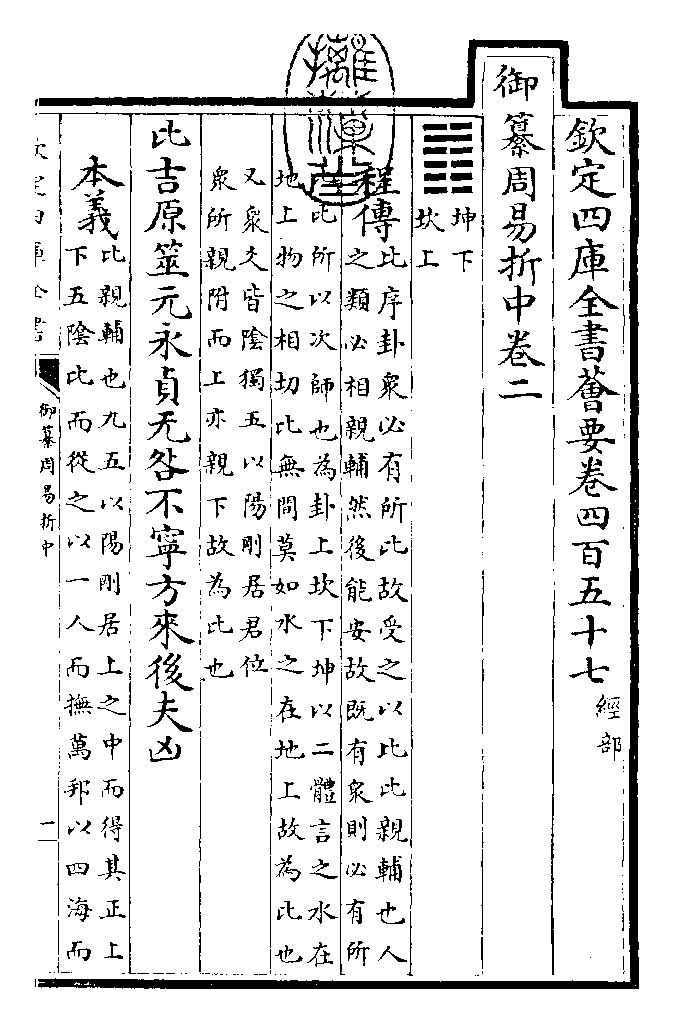 欽定四庫全書薈要卷四百五十七
經部
御纂周易折中卷二
坤下
坎上
程傳
比序卦衆必有所比故受之以比比親輔也人
之類必相親輔然後能安故既有衆則必有所
比所以次師也為卦上坎下坤以二體言之水在
地上物之相切比無間莫如水之在地上故為比也
又衆爻皆陰獨五以陽剛居君位
衆所親附而上亦親下故為比也
比吉原筮元永貞无咎不寧方來後夫凶
本義
比親輔也九五以陽剛居上之中而得其正上
下五陰比而從之以一人而撫萬邦以四海而
欽定四庫全書
御纂周易折中
一